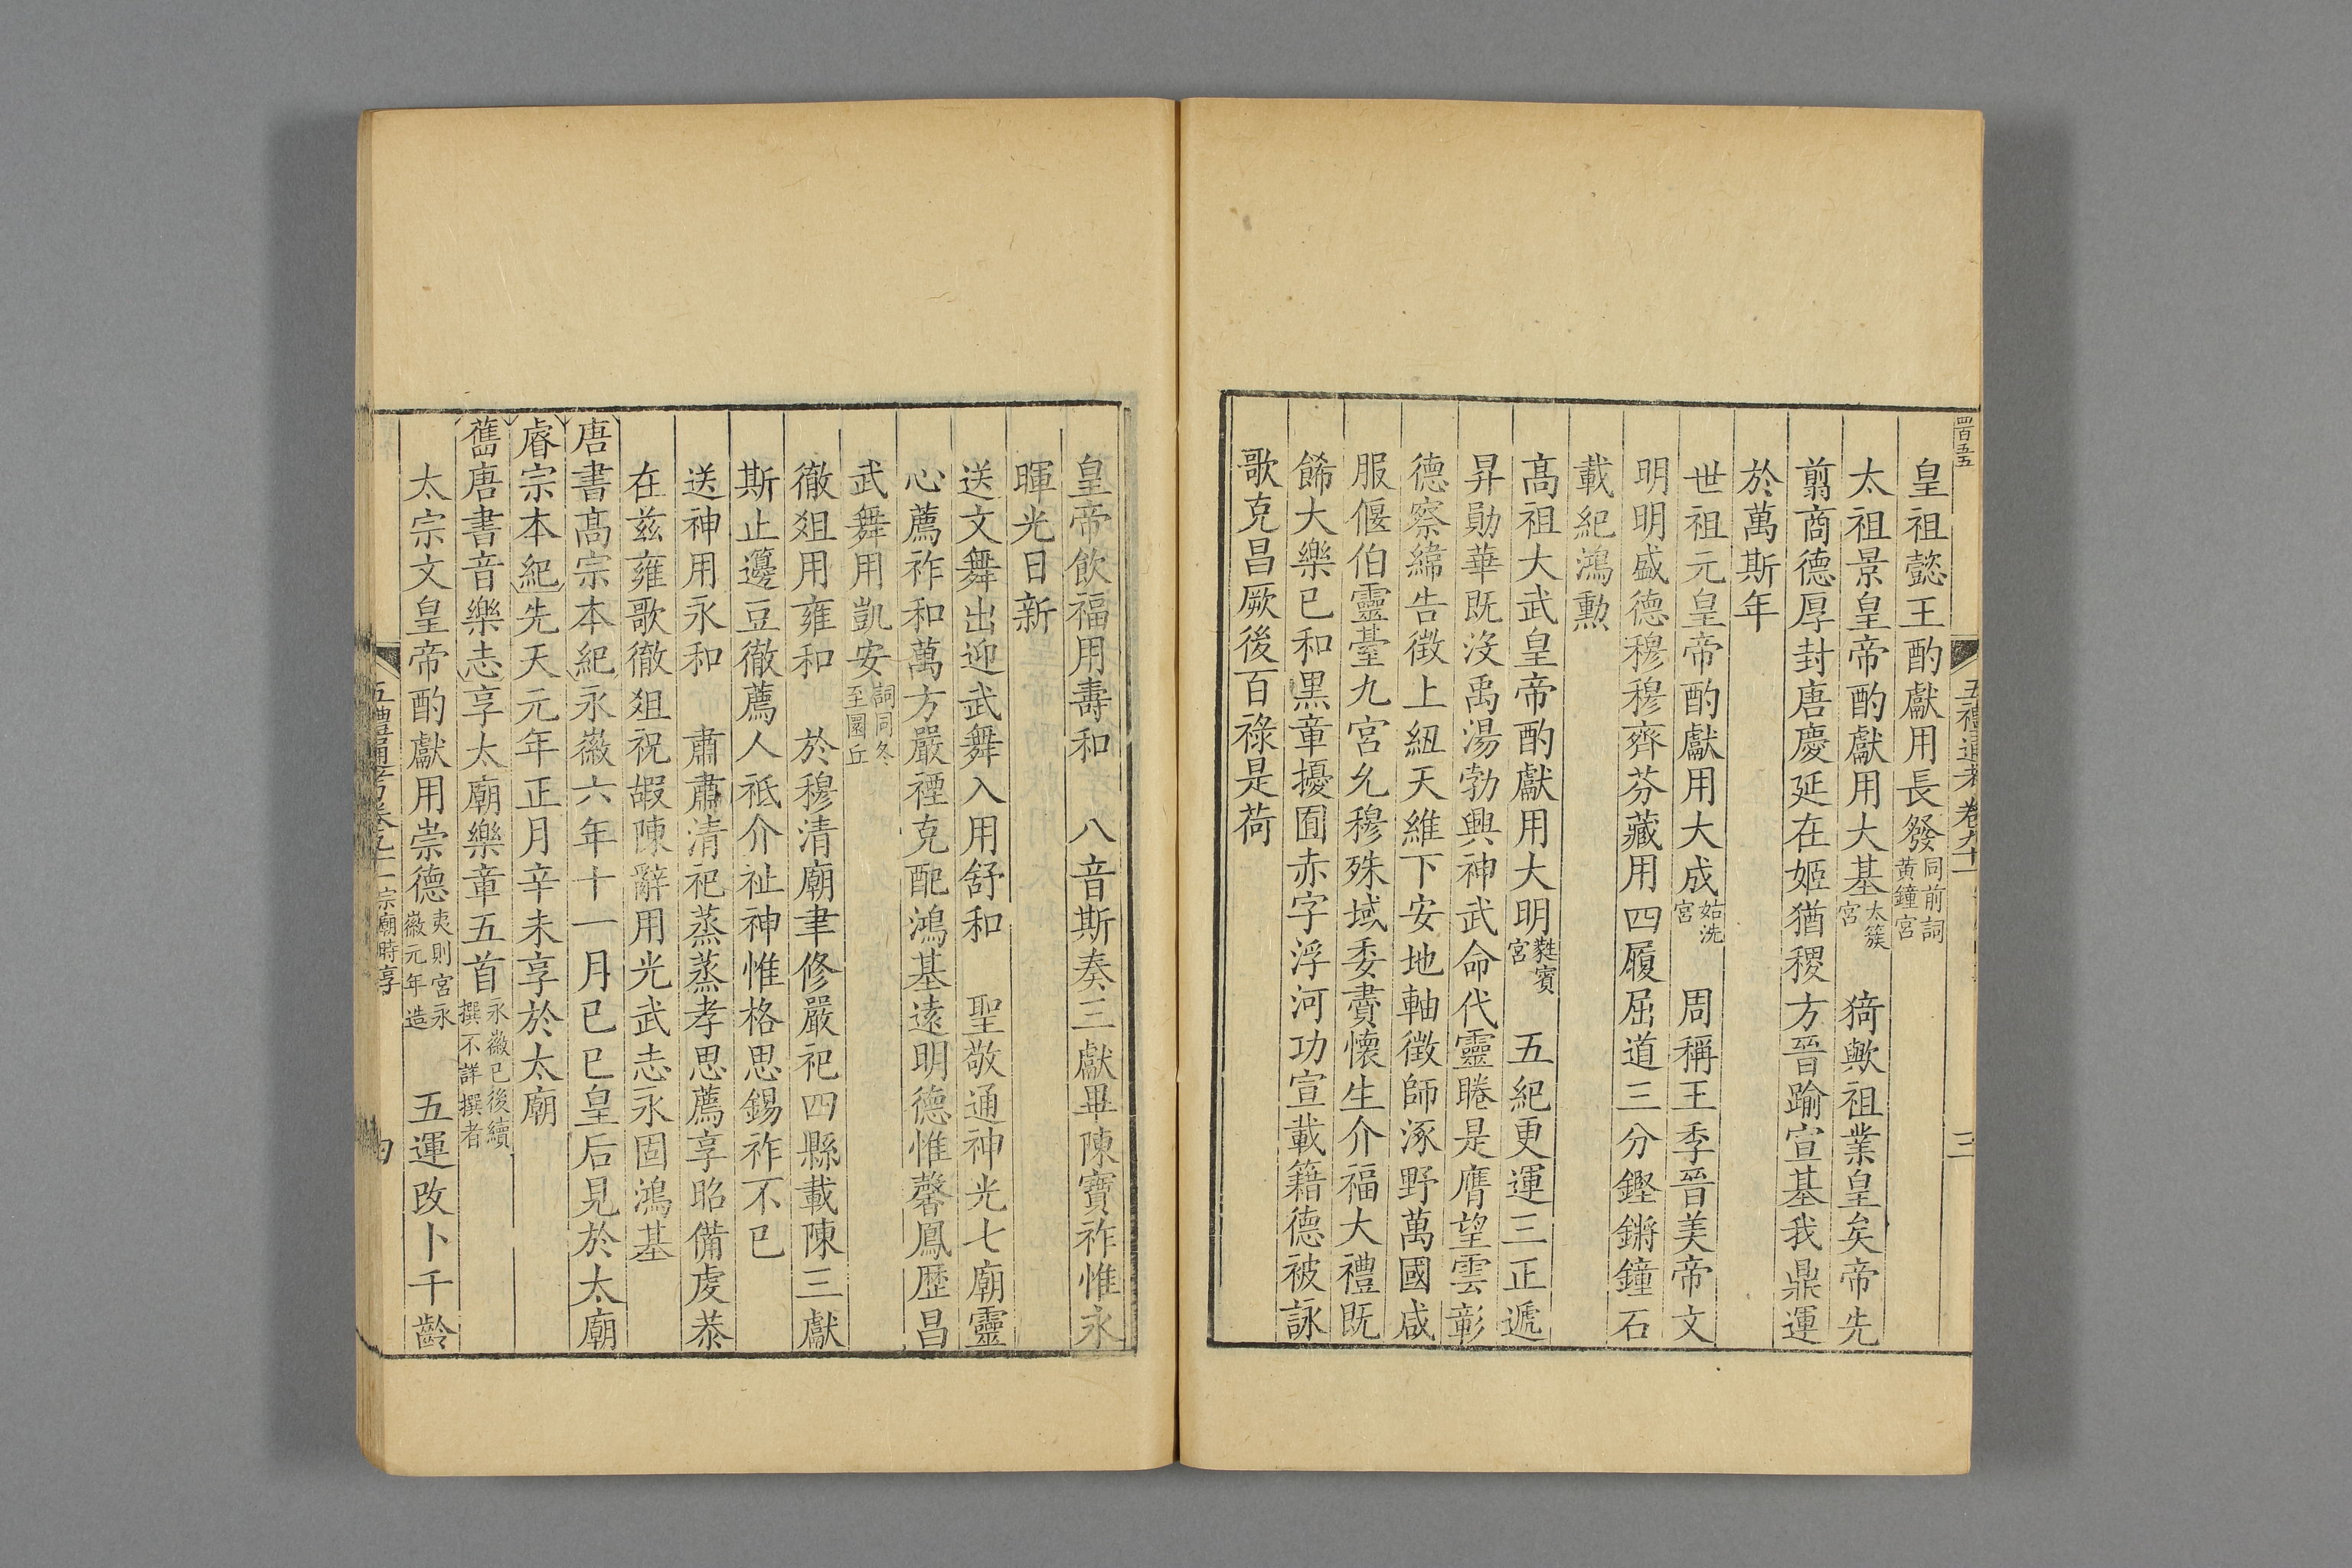 四百五五
五禮通考卷九十一
三
皇祖懿王酌獻用長發同前詞黃鐘宮
太祖景皇帝酌獻用大基太簇宮 猗歟祖業皇矣帝先
翦商德厚封唐慶延在姬猶稷方晉踰宣基我鼎運
於萬斯年
世祖元皇帝酌獻用大成姑洗宮 周稱王季晉美帝文
明明盛德穆穆齊芬藏用四履屈道三分鏗鏘鐘石
載紀鴻勲
髙祖大武皇帝酌獻用大明蕤賓宮 五紀更運三正遞
昇勛華既沒禹湯勃興神武命代靈睠是膺望雲彰
德察緯告徴上紐天維下安地軸徵師涿野萬國咸
服偃伯靈臺九宮允穆殊域委賮懷生介福大禮既
餙大樂已和黑章擾囿赤字浮河功宣載籍德被詠
歌克昌厥後百祿是荷
皇帝飲福用壽和 八音斯奏三獻畢陳寶祚惟永
暉光日新
送文舞出迎武舞入用舒和 聖敬通神光七廟靈
心薦祚和萬方嚴禋克配鴻基遠明德惟馨鳳歷昌
武舞用凱安詞同冬至圜丘
徹俎用雍和 於穆清廟聿修嚴祀四縣載陳三獻
斯止籩豆徹薦人祗介祉神惟格思錫祚不已
送神用永和 肅肅清祀蒸蒸孝思薦享昭備虔恭
在兹雍歌徹俎祝嘏陳辭用光武志永固鴻基
唐書髙宗本紀永徽六年十一月已巳皇后見於太廟
睿宗本紀先天元年正月辛未享於太廟
舊唐書音樂志享太廟樂章五首永徽已後續撰不詳撰者
太宗文皇帝酌獻用崇德夷則宮永徽元年造 五運改卜千齡
五禮通考卷九十一宗廟時享
四